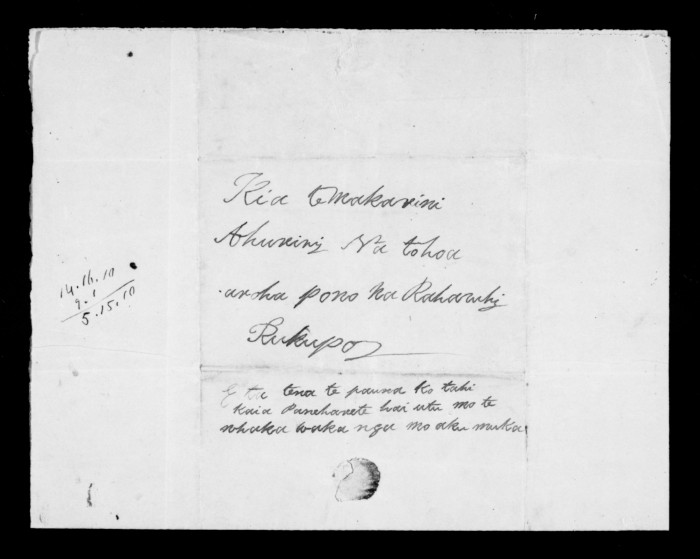 Kia temakarini
Ahuriri Na tohoa
aroha pono Na Raharuhi
Rukupo
14.16.10
9.1
5.15.10
E ta tena te pauna Ko tahi
Kaia Panehanete hai utu mo te
whaka waka nga mo aku muka